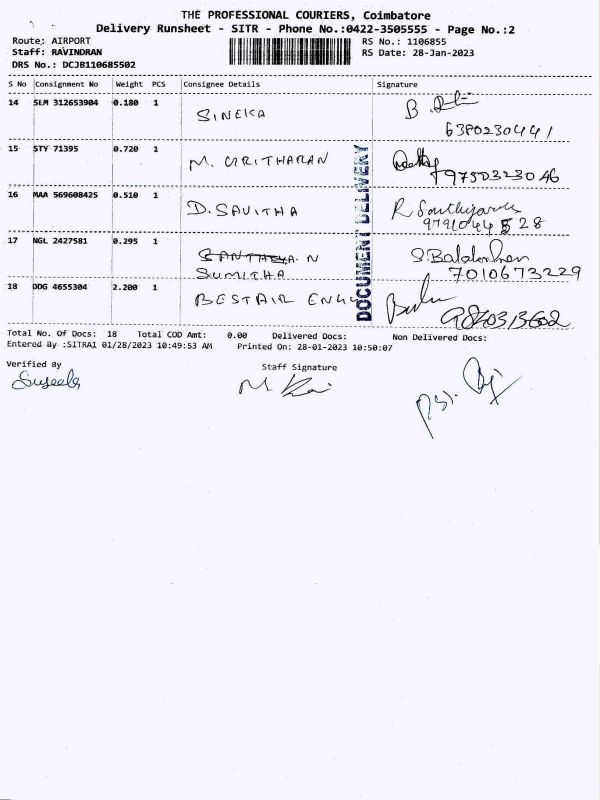 THE PROFESSIONAL COURIERS, Coimbatore
Delivery Runsheet - SITR - Phone No.:0422-3505555 - Page No.:2
Route: AIRPORT
Staff: RAVINDRAN
DRS No.: DCJB110685502
RS No.: 1106855
RS Date: 28-Jan-2023
S No Consignment No Weight PCS Consignee Details Signature
14 SLM 312653904 0.180 1 SINEKA B.
6380230441
15 STY 71395 0.720 1 M. GRITHARAN
9750323046
16 MAA 569608425 0.510 1 D. SAVITHA R
9791044528
17 NGL 2427581 0.295 1 N
SUMITHA
7010673229
18 DDG 4655304 2.200 1 BESTAIR ENGG
9840313602
DOCUMENT DELIVERY
Total No. Of Docs: 18 Total COD Amt: 0.00 Delivered Docs: Non Delivered Docs:
Entered By :SITRA1 01/28/2023 10:49:53 AM Printed On: 28-01-2023 10:50:07
Verified By
Suseela
Staff Signature